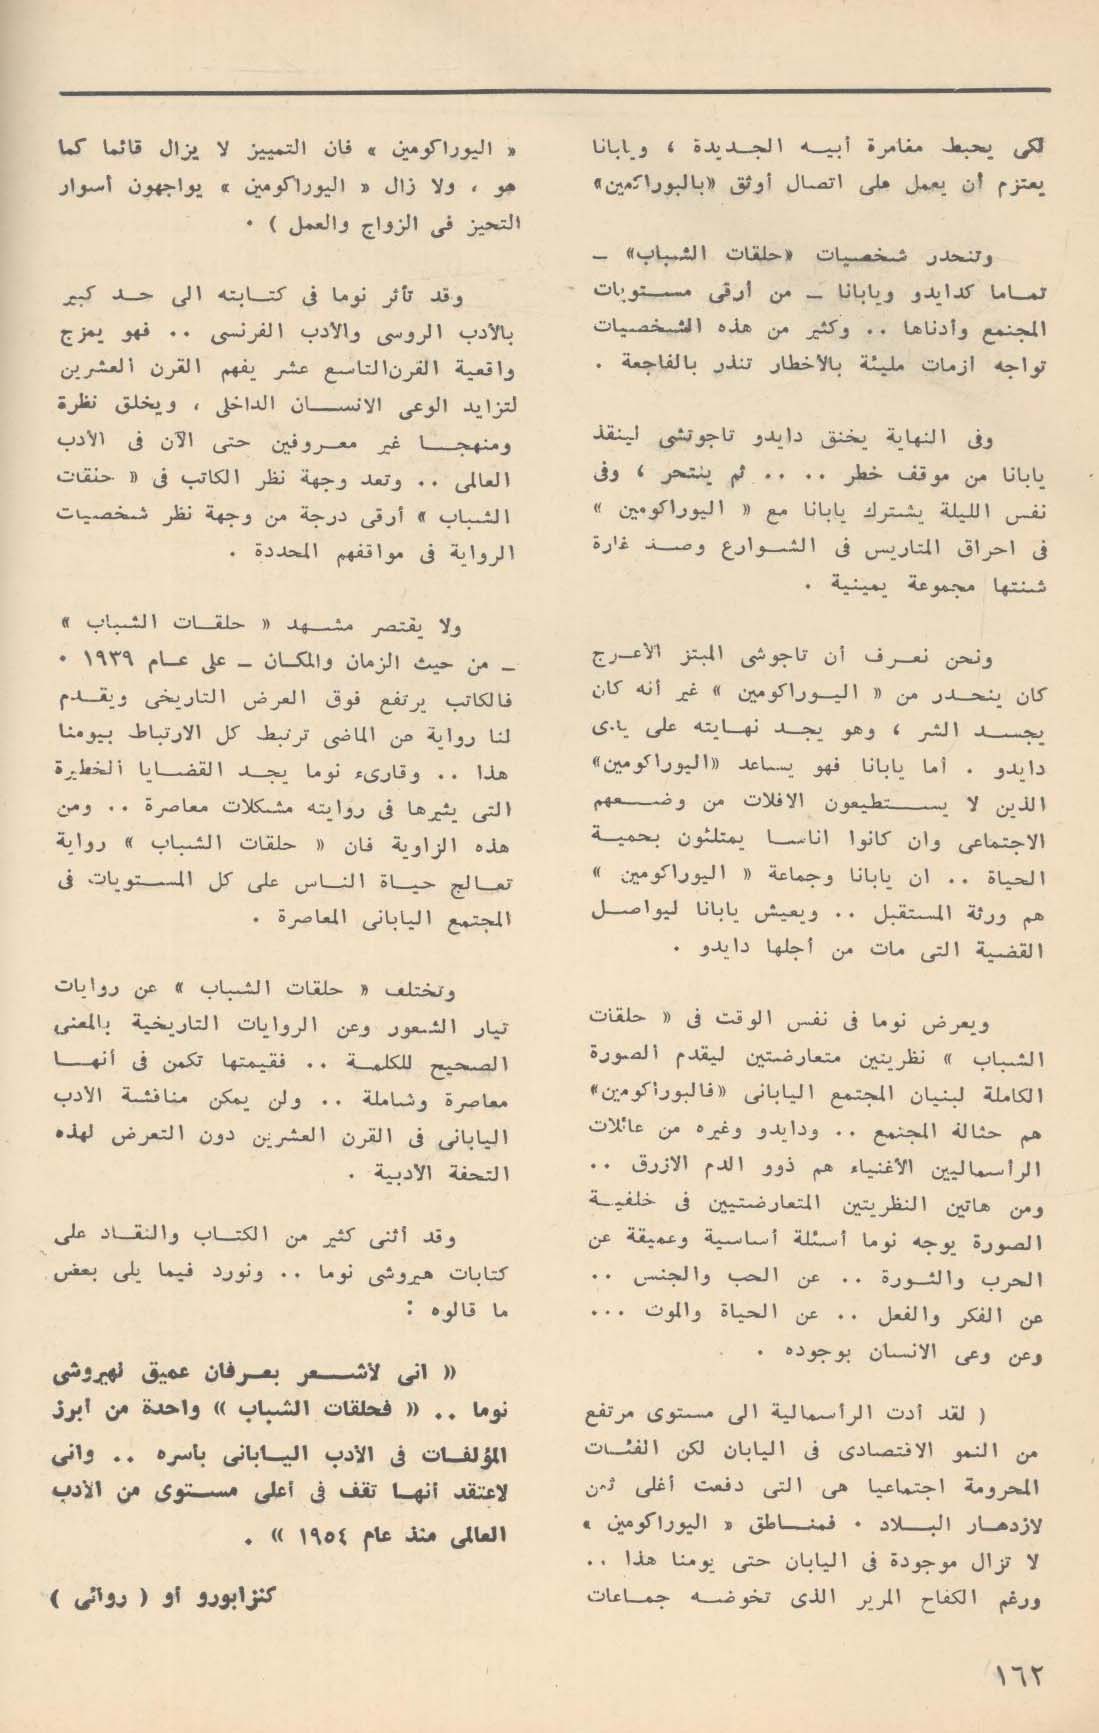 لكى يحبط مغامرة أبيه الجديدة ، ويابانا
يعتزم أن يعمل على اتصال أوثق «بالبوراكمين»
وتنحدر شخصيات «حلقات الشباب» ـ
تماما كدايدو ويابانا ـ من أرقى مستويات
المجتمع وأدناها .. وكثير من هذه الشخصيات
تواجه ازمات مليئة بالأخطار تنذر بالفاجعة .
وفى النهاية يخنق دايدو تاجوتشى لينقذ
يابانا من موقف خطر .. .. ثم ينتحر ، وفى
نفس الليلة يشترك يابانا مع « اليوراكومين »
فى احراق المتاريس فى الشوارع وصد غارة
شنتها مجموعة يمينية .
ونحن نعرف أن تاجوشى المبتز الأعرج
كان ينحدر من « اليوراكومين » غير أنه كان
يجسد الشر ، وهو يجد نهايته على يادى
دايدو . أما يابانا فهو يساعد «اليوراكومين»
الذين لا يستطيعون الافلات من وضعهم
الاجتماعى وان كانوا اناسا يمتلئون بحمية
الحياة .. ان يابانا وجماعة « اليوراكومين »
هم ورثة المستقبل .. ويعيش يابانا ليواصل
القضية التى مات من أجلها دايدو .
ويعرض نوما فى نفس الوقت فى « حلقات
الشباب » نظريتين متعارضتين ليقدم الصورة
الكاملة لبنيان المجتمع اليابانى «فالبوراكومين»
هم حثالة المجتمع .. ودايدو وغيره من عائلات
الرأسماليين الأغنياء هم ذوو الدم الازرق ..
ومن هاتين النظريتين المتعارضتيين فى خلفية
الصورة يوجه نوما أسئلة أساسية وعميقة عن
الحرب والثورة .. عن الحب والجنس ..
عن الفكر والفعل .. عن الحياة والموت ...
وعن وعى الانسان بوجوده .
( لقد أدت الرأسمالية الى مستوى مرتفع
من النمو الاقتصادى فى اليابان لكن الفئات
المحرومة اجتماعيا هى التى دفعت أغلى ثمن
لازدهار البلاد . فمناطق « اليوراكومين »
لا تزال موجودة فى اليابان حتى يومنا هذا ..
ورغم الكفاح المرير الذى تخوضه جماعات
« اليوراكومين » فان التمييز لا يزال قائما كما
هو ، ولا زال « اليوراكومين » يواجهون أسوار
التحيز فى الزواج والعمل ) .
وقد تأثر نوما فى كتابته الى حد كبير
بالأدب الروسى والأدب الفرنسى .. فهو يمزج
واقعية القرن التاسع عشر يفهم القرن العشرين
لتزايد الوعى الانسان الداخلى ، ويخلق نظرة
ومنهجا غير معروفين حتى الآن فى الأدب
العالمى .. وتعد وجهة نظر الكاتب فى « حنقات
الشباب » أرقى درجة من وجهة نظر شخصيات
الرواية فى مواقفهم المحددة .
ولا يقتصر مشهد « حلقات الشباب »
ـ من حيث الزمان والمكان ـ على عام ١٩٣٩ .
فالكاتب يرتفع فوق العرض التاريخى ويقدم
لنا رواية من الماضى ترتبط كل الارتباط بيومنا
هذا .. وقارىء نوما يجد القضايا الخطيرة
التى يثيرها فى روايته مشكلات معاصرة .. ومن
هذه الزاوية فان « حلقات الشباب » رواية
تعالج حياة الناس على كل المستويات فى
المجتمع اليابانى المعاصرة .
وتختلف « حلقات الشباب » عن روايات
تيار الشعور وعن الروايات التاريخية بالمعنى
الصحيح للكلمة .. فقيمتها تكمن فى أنها
معاصرة وشاملة .. ولن يمكن منافشة الأدب
اليابانى فى القرن العشرين دون التعرض لهذه
التحفة الأدبية .
وقد أثنى كثير من الكتاب والنقاد على
كتابات هيروشى نوما .. ونورد فيما يلى بعض
ما قالوه :
« انى لأشعر بعرفان عميق لهيروشى
نوما .. « فحلقات الشباب » واحدة من أبرز
المؤلفات فى الأدب اليابانى بأسره .. وانى
لاعتقد أنها تقف فى أعلى مستوى من الأدب
العالمى منذ عام ١٩٥٤ » .
كنزابورو أو ( روائى )
١٦٢